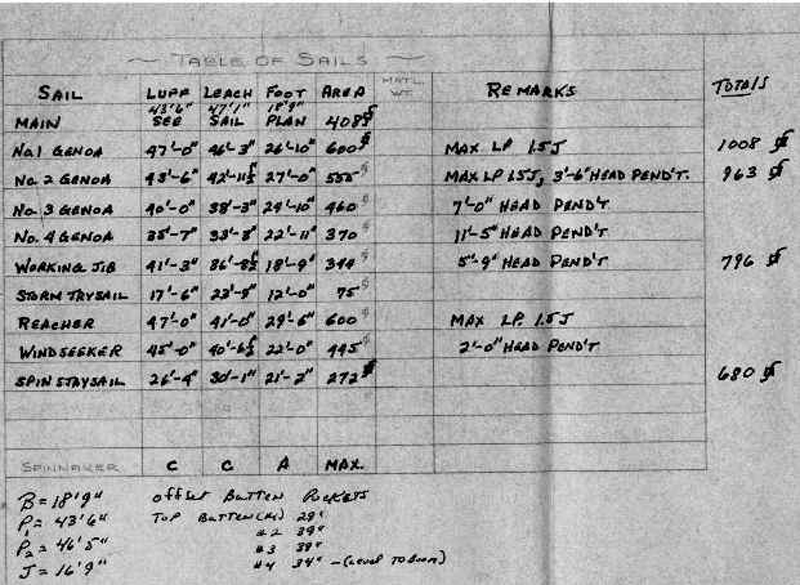 TABLE OF SAILS
SAIL LUFF LEACH FOOT AREA MAT'L WT. REMARKS TOTALS
43'6" 47'1" 18'9"
MAIN SEE SAIL PLAN 408
No.1 GENOA 47'-0" 46'-3" 26'-10" 600 MAX LP 1.5J 1008
No. 2 GENOA 43'-6" 27'-0" 555 MAX LP 1.5J, 3'-6" HEAD PEND'T. 963
No. 3 GENOA 40'-0" 38'-3" 24'-10" 460 7'-0" HEAD PEND'T
No. 4 GENOA 35'-7" 33'-8" 22'-11" 370 11'-5" HEAD PEND'T
WORKING JIB 41'-3" 18'-9" 5'-9" HEAD PEND'T 796
STORM TRYSAIL 17'-6" 12'-0" 75
REACHER 47'-0" 41'-0" 29'-6" 600 MAX LP. 1.5J
WINDSEEKER 45'-0" 22'-0" 445 2'-0" HEAD PEND'T
SPIN STAYSAIL 26'-4" 30'-1" 21'-2" 272 680
SPINNAKER C C A MAX.
B = 18'9" offset BATTEN POCKETS
P1 = 43'6" TOP BATTEN 29"
P2 = 46'5" #2 39"
#3 39"
J = 16'9" #4 34" - (LEVEL TO BOOM)